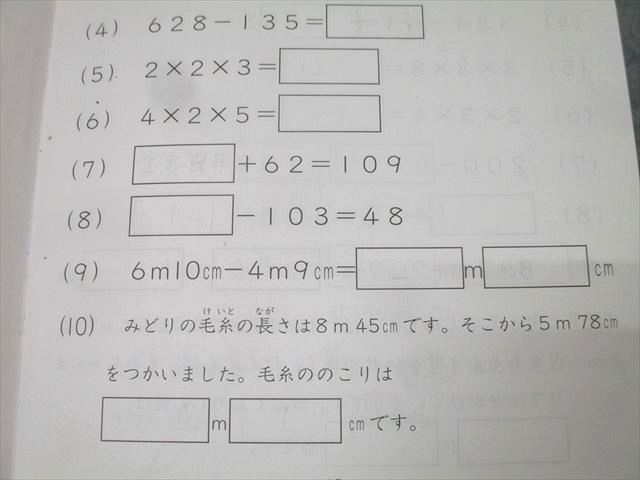 (4) 628－135＝
(5) 2×2×3＝
(6) 4×2×5＝
(7) ＋62＝109
(8) －103＝48
(9) 6m10cm－4m9cm＝ m cm
(10) みどりの毛糸の長さは8m45cmです。そこから5m78cm
けいと なが
をつかいました。毛糸ののこりは
m cmです。